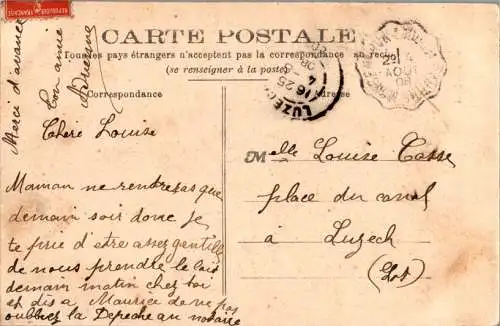 REPUBLIQUE FRANÇAISE
CARTE POSTALE
Tous les pays étrangers n'acceptent pas la correspondance au recto
(se renseigner à la poste)
Correspondance
Adresse
LUZECH
16 25
Merci d'avance
Ton amie
Chère Louise
Maman ne rentreras que
demain soir donc je
te prie d'être assez gentille
de nous prendre le lait
demain matin chez toi
et dis a Maurice de ne pas
oubliez la Depeche au notaire
Melle Louise Casse
place du canal
à Luzech
(Lot)